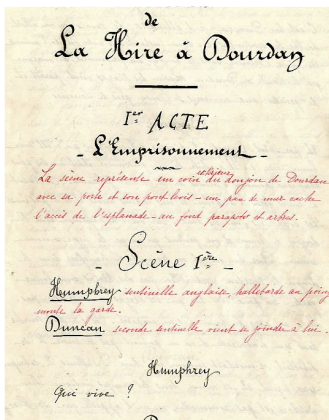 de
La Hire à Dourdan
Ier ACTE
- L'Emprisonnement -
extérieur
La scène représente un coin du donjon de Dourdan
avec sa porte et son pont levis - un pan de mur cache
l'accès de l'esplanade - au fond parapets et arbres.
- Scène Ière -
Humphrey sentinelle anglaise, hallebarde au poing
monte la garde.
Duncan seconde sentinelle vient se joindre à lui.
Humphrey
Qui vive ?